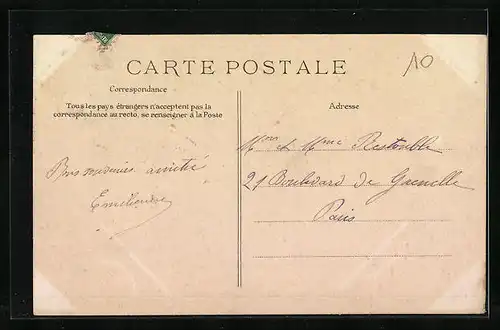 CARTE POSTALE
10
Correspondance
Tous les pays étrangers n'acceptent pas la
correspondance au recto, se renseigner à la Poste
Adresse
Bons souvenirs amitié
Mr & Mme Restouble
21 Boulevard de Grenelle
Paris